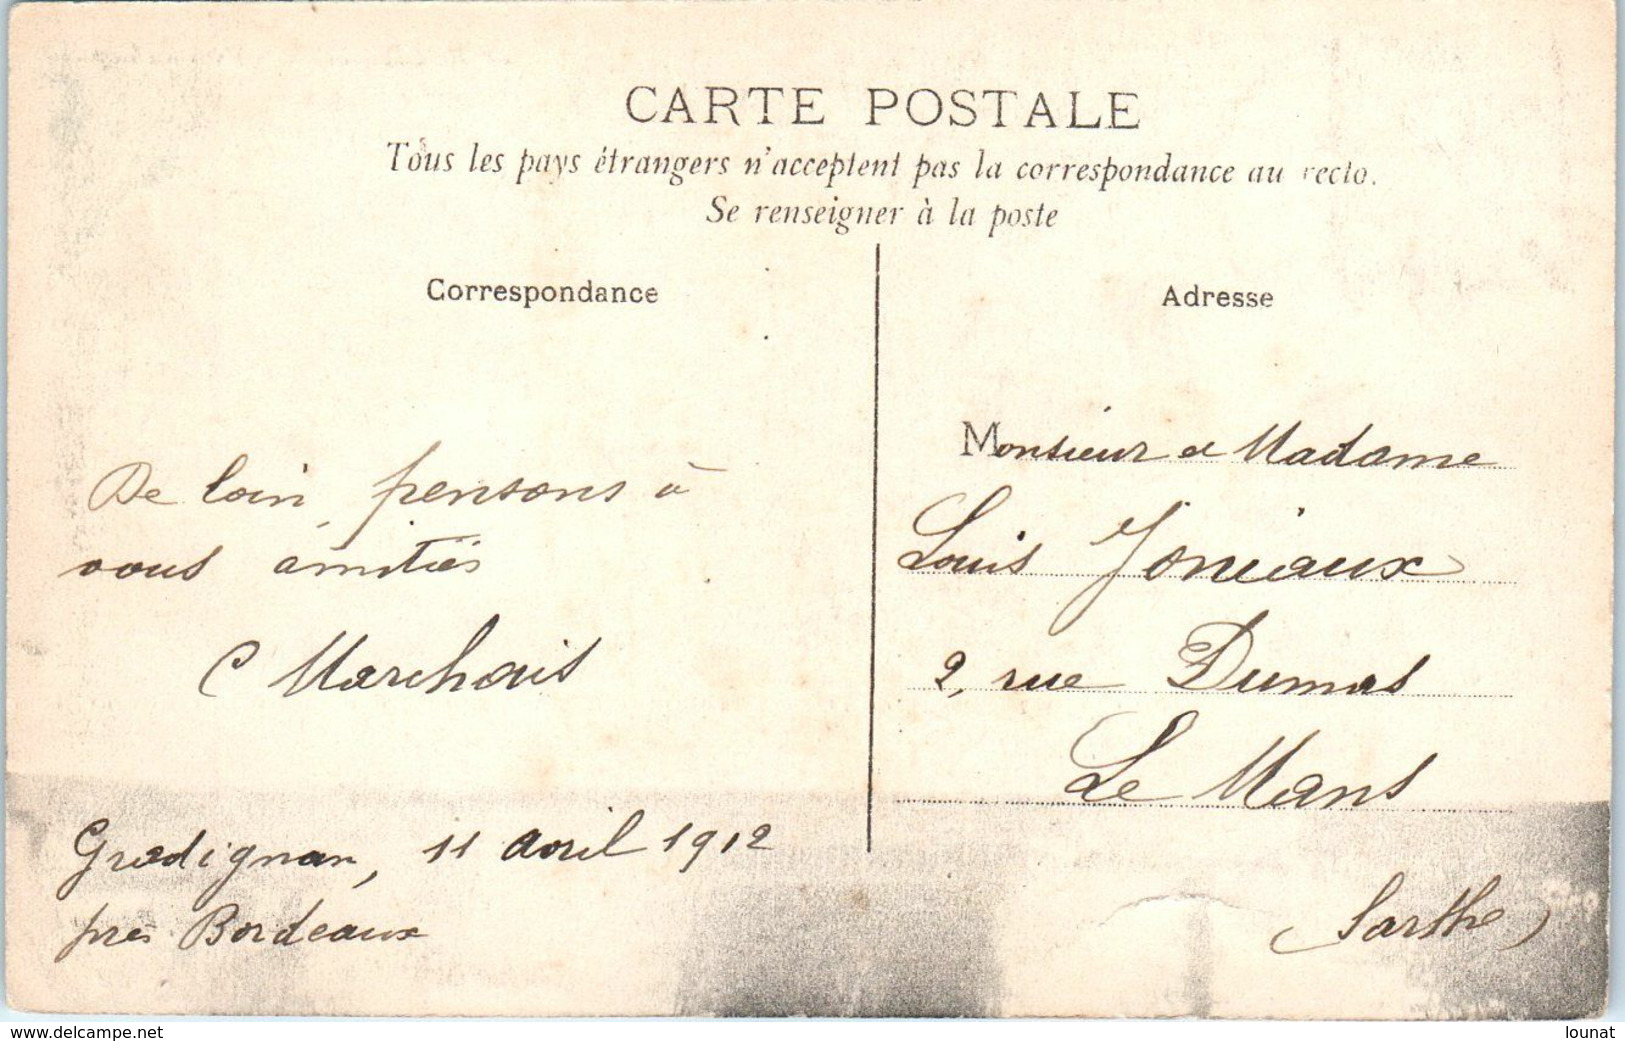 CARTE POSTALE
Tous les pays étrangers n'acceptent pas la correspondance au recto.
Se renseigner à la poste
Correspondance
Adresse
De loin, pensons à
vous amitiés
C Marchais
Gradignan, 11 avril 1912
près Bordeaux
Monsieur et Madame
Louis Joniaux
2, rue Dumas
Le Mans
(Sarthe)
www.delcampe.net
lounat